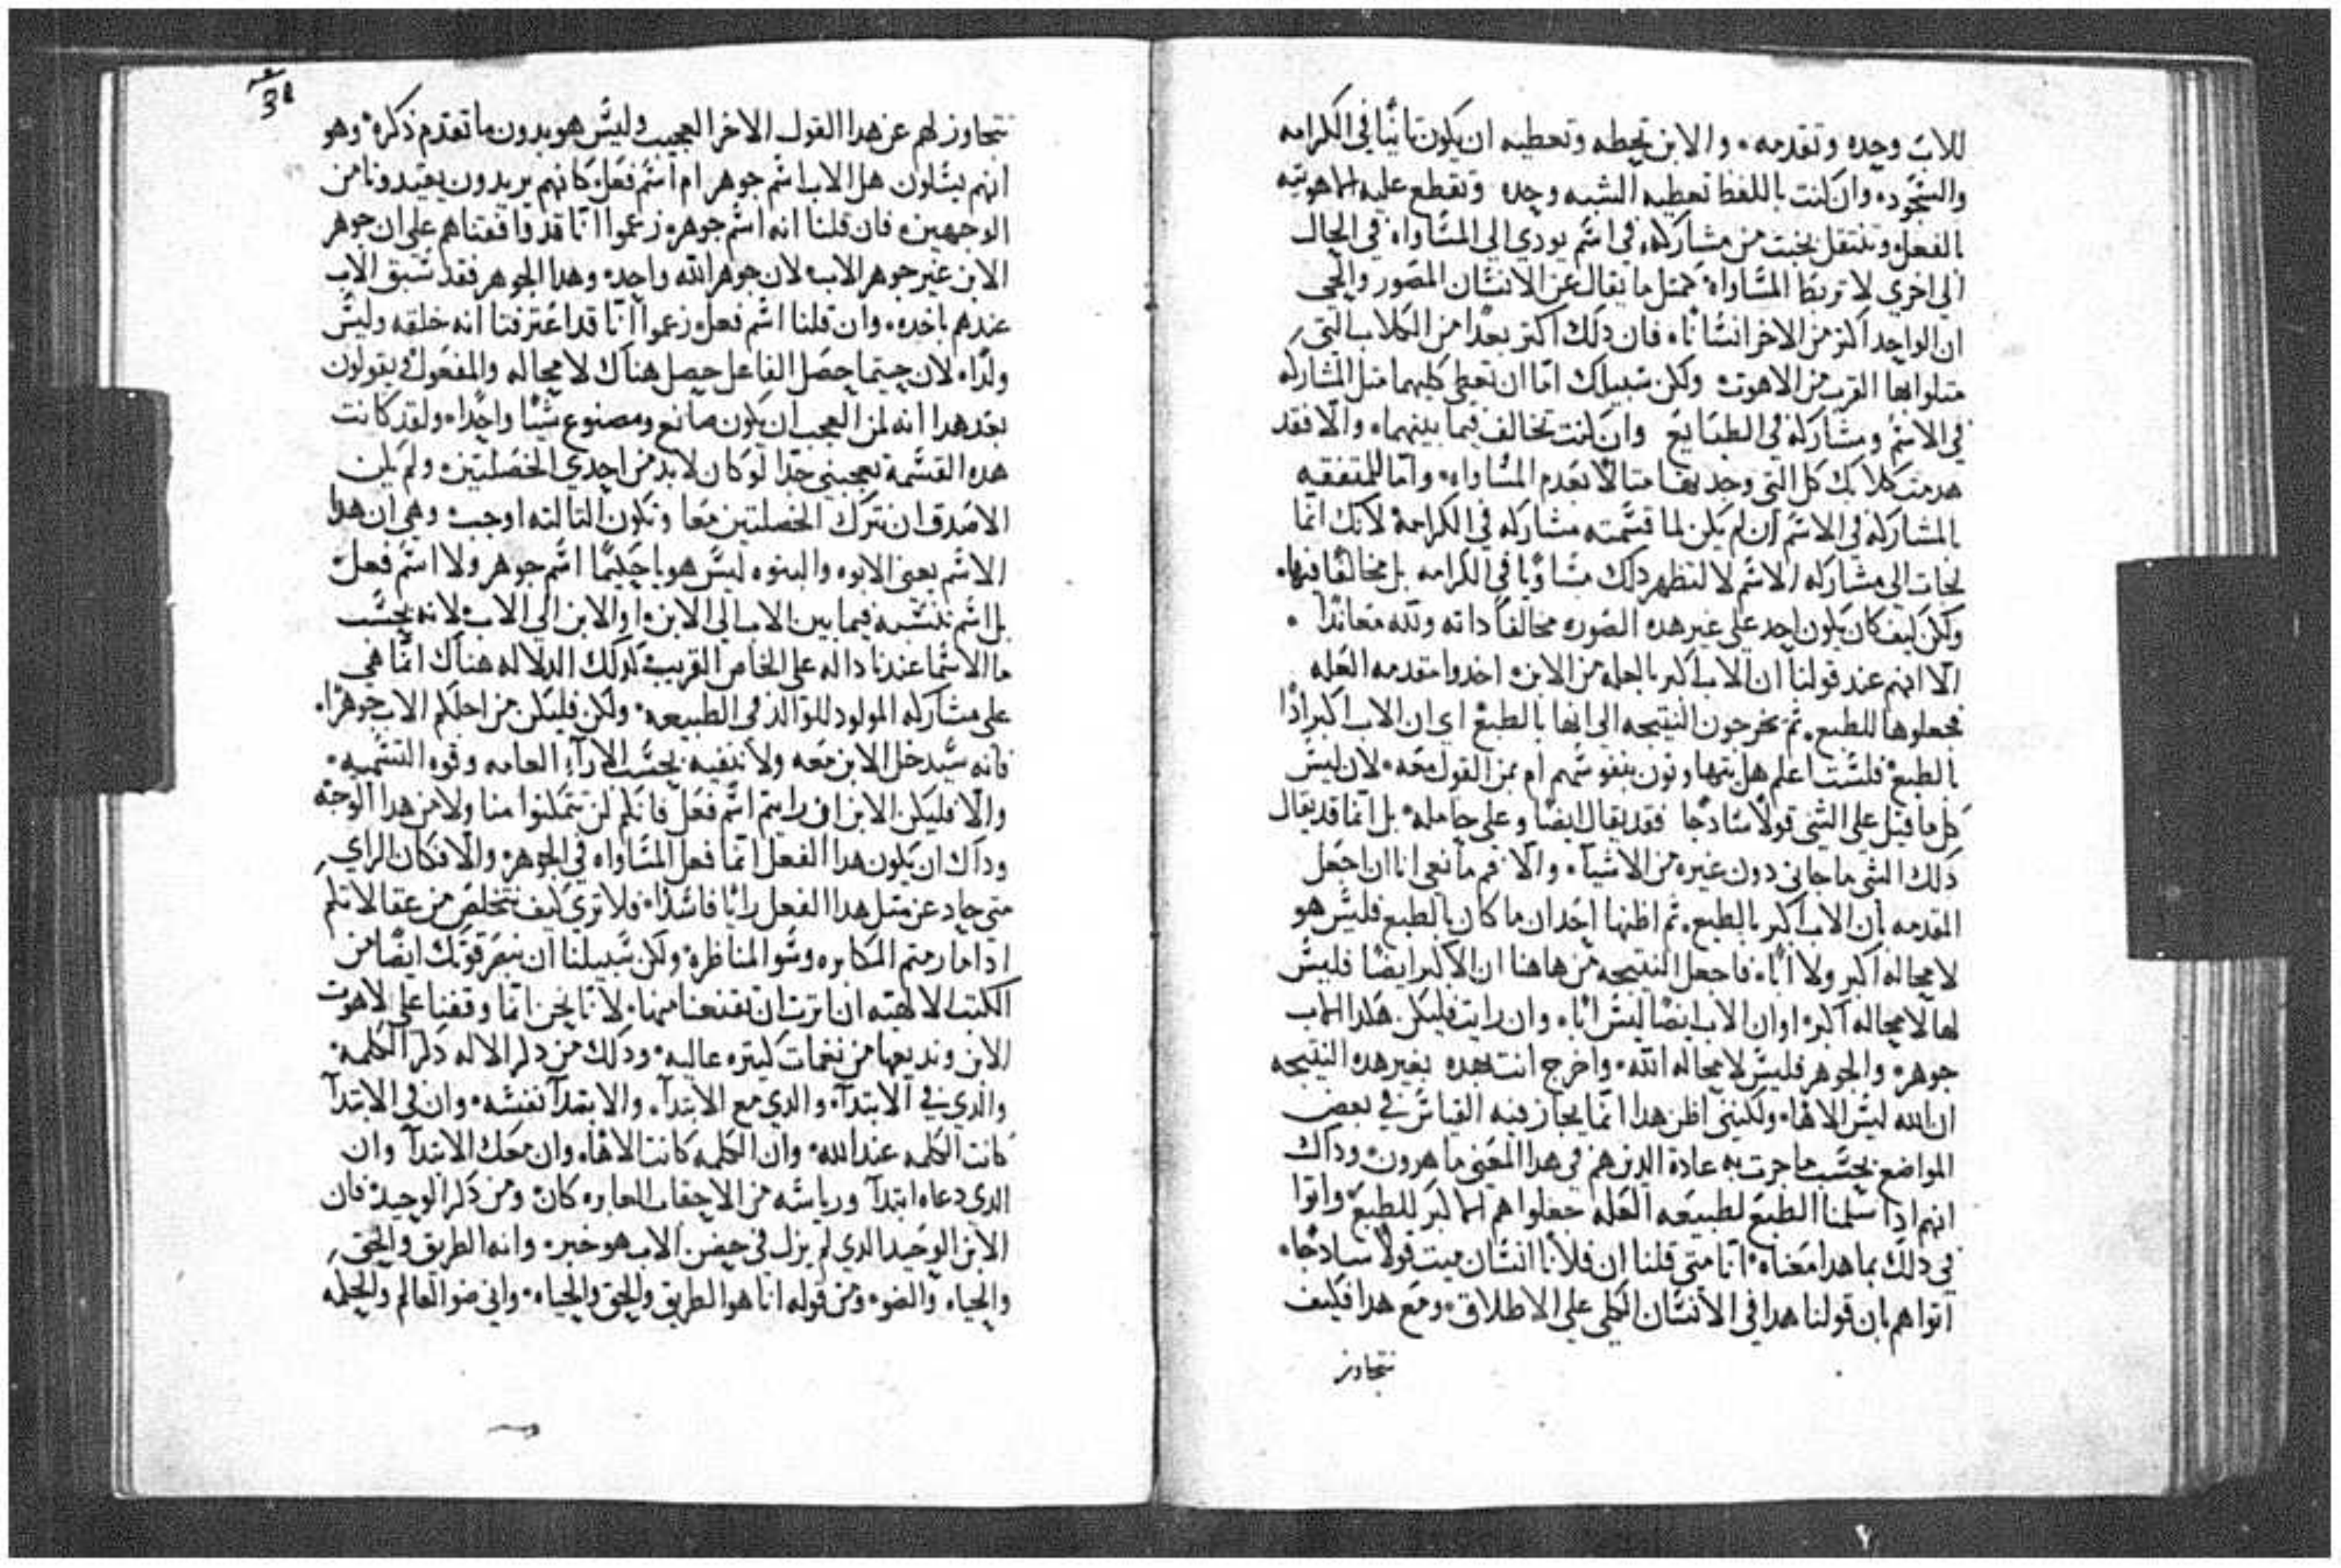 للاب وحده وتقدمه، والابن تحطه وتعطيه ان يكون تانيًا في الكرامه
والسجود، وان كنت باللفظ تعطيه الشبه وحده وتقطع عليه
الفعل وتنتقل بخبث من مشاركه في اسم يودي الي المساواه في الحال
الي اخري لا تربط المساواة حمتل ما يقال عن الانسان المصور والحي
ان الواحد اكتر من الاخر انسانًا، فان دلك اكتر بعدًا من الكلاب التي
القرب من الاهوت ولكن سبيلك امّا ان تعطي كليهما متل المشاركه
في الاسم ومشاركه في الطبايع وان كانت تخالف فيما بينهما، والّا فقد
هدمت كلابك كل التي وجد بعدم المساواه وامّا المنفعه
المشاركه في الاسم ان لم يكن لما قسّمته مشاركه في الكرامة لانك انّما
لجات الي مشاركه الاسم لا لتظهر دلك مساويًا في الكرامه بل مخالفًا فيها،
ولكن كيف كان يكون احد علي غير هده الصوره مخالفًا داته معاندًا
الّا انهم عند قولنا ان الاب اكبر بالعله من الابن، اخدوا مقدمه العله
فجعلوها للطبع، تم يخرجون النتيجه الي انها بالطبع اي ان الاب اكبر ادًا
بالطبع فلست اعلم هل يتهاونون بنفوسهم ام بمن القول معه، لان ليس
كل ما قيل علي الشي قولًا سادجًا فقد يقال ايضًا وعلي حامله، بل انّما قد يقال
دلك الشي دون غيره من الاشياء، والّا فما مانعي انا ان اجعل
المقدمه بان الاب اكبر بالطبع، تم اظنها ان ما كان بالطبع فليس هو
لا محاله اكبر ولا ابًا، فاجعل النتيجه من هاهنا ان الاكبر ايضًا فليس
لا محاله اكبر، او ان الاب ايضًا ليس ابًا، وان رايت فليكن هكدا
جوهر، والجوهر فليس لا محاله الله، واخرج انت بعده بغير هده النتيجه
ان الله ليس الاهًا، ولكنني اظن هدا انّما يجاز فيه القياس في بعض
المواضع بحسب ما جرت به عادة الدين هم في هدا المعني ماهرون، وداك
انهم ادا سلمنا الطبع لطبيعه العله جعلوا هم الاكبر للطبع واتوا
في دلك بما هدا معناه، انّا متي قلنا ان فلانًا انسان ميت قولًا سادجًا،
اتوا هم بان قولنا هدا في الانسان الكلي علي الاطلاق، ومع هدا فكيف
نتجاوز
نتجاوز لهم عن هدا القول الاخر العجيب وليس هو بدون ما تقدم ذكره، وهو
انهم يسلون هل الاب اسم جوهر ام اسم فعل، كانهم يريدون يقيدونا من
الوجهين، فان قلنا انه اسم جوهر، زعموا انّا قد وافقناهم علي ان جوهر
الابن غير جوهر الاب، لان جوهر الله واحد، وهدا الجوهر فقد سبق الاب
عندهم باخده، وان قلنا اسم فعل، زعموا انّا قد اعترفنا انه خلقه وليس
ولدًا، لان حيتما حصل الفاعل حصل هناك لا محاله والمفعول، ويقولون
بعد هدا انه لمن العجب ان يكون صانع ومصنوع شيئًا واحدًا، ولقد كانت
هده القسمة تعجبني جدًا لو كان لا بد من احدي الخصلتين، ولم يكن
الاصدق ان نترك الخصلتين معًا وتكون التالته اوجب، وهي ان هدا
الاسم يعني الابوه والبنوه ليس هو يا حكيمًا اسم جوهر ولا اسم فعل
بل اسم نسبه فيما بين الاب الي الابن، او الابن الي الاب، لانه بحسب
ما الاسما عندنا داله علي الخاص القريب كدلك الدلاله هناك انّما هي
علي مشاركه المولود للوالد في الطبيعه، ولكن فليكن من اجلكم الاب جوهرًا،
فانه سيدخل الابن معه ولا ننفيه بحسب الاراء العامه وقوه التسميه،
والّا فليكن الابن ان رايتم اسم فعل فانكم لن تتمكنوا منا ولا من هدا الوجه
وداك ان يكون هدا الفعل انّما فعل المساواه في الجوهر، والّا فكان الراي
متي حاد عن متل هدا الفعل رايًا فاسدًا، فلا تري كيف نتخلص من عقالاتكم
ادا ما رمتم المكابره وسو المناظره، ولكن سبيلنا ان قوتك ايضًا من
الكتب الالهيه ان اترت ان تقنعنا منها، لانّا نحن انّما وقفنا علي لاهوت
الابن ونديعها من نغمات كتيره عاليه، ودلك من دكر الاله دكر الكلمه،
والدي في الابتدآ، والدي مع الابتدآ، والابتدآ نفسه، وان في الابتدآ
كانت الكلمه عند الله، وان الكلمه كانت الاهًا، وان معك الابتدآ وان
الدي دعاه ابتدآ ورياسه من الاحقاب العابره كان، ومن دكر الوحيد، فان
الابن الوحيد الدي لم يزل في حضن الاب هو خبر، وانه الطريق والحق
والحياه والضو، ومن قوله انا هو الطريق والحق والحياه، واني ضو العالم والحكمه